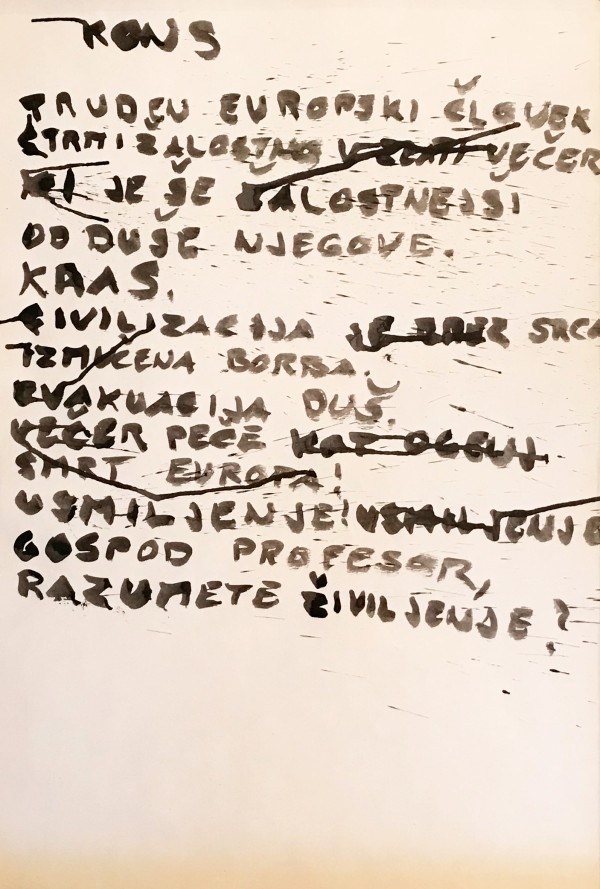 KONS
TRUDEN EVROPSKI ČLOVEK
STRMI ŽALOSTNO V ZLATI VEČER
KI JE ŠE ŽALOSTNEJSI
OD DUŠE NJEGOVE.
KRAS.
CIVILIZACIJA JE BREZ SRCA
IZMUČENA BORBA.
EVAKUACIJA DUŠ.
VEČER PEČE KOT OGENJ.
SMRT EVROPA!
USMILJENJE! USMILJENJE
GOSPOD PROFESOR,
RAZUMETE ŽIVILJENJE?